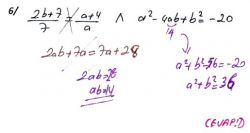 6/ 2b+7/7 = a+4/a ∧ a²-4ab+b²=-20
14
2ab+7a=7a+28
2ab=28
ab=14
a²+b²-56=-20
a²+b²=36
(CEVAP:D)